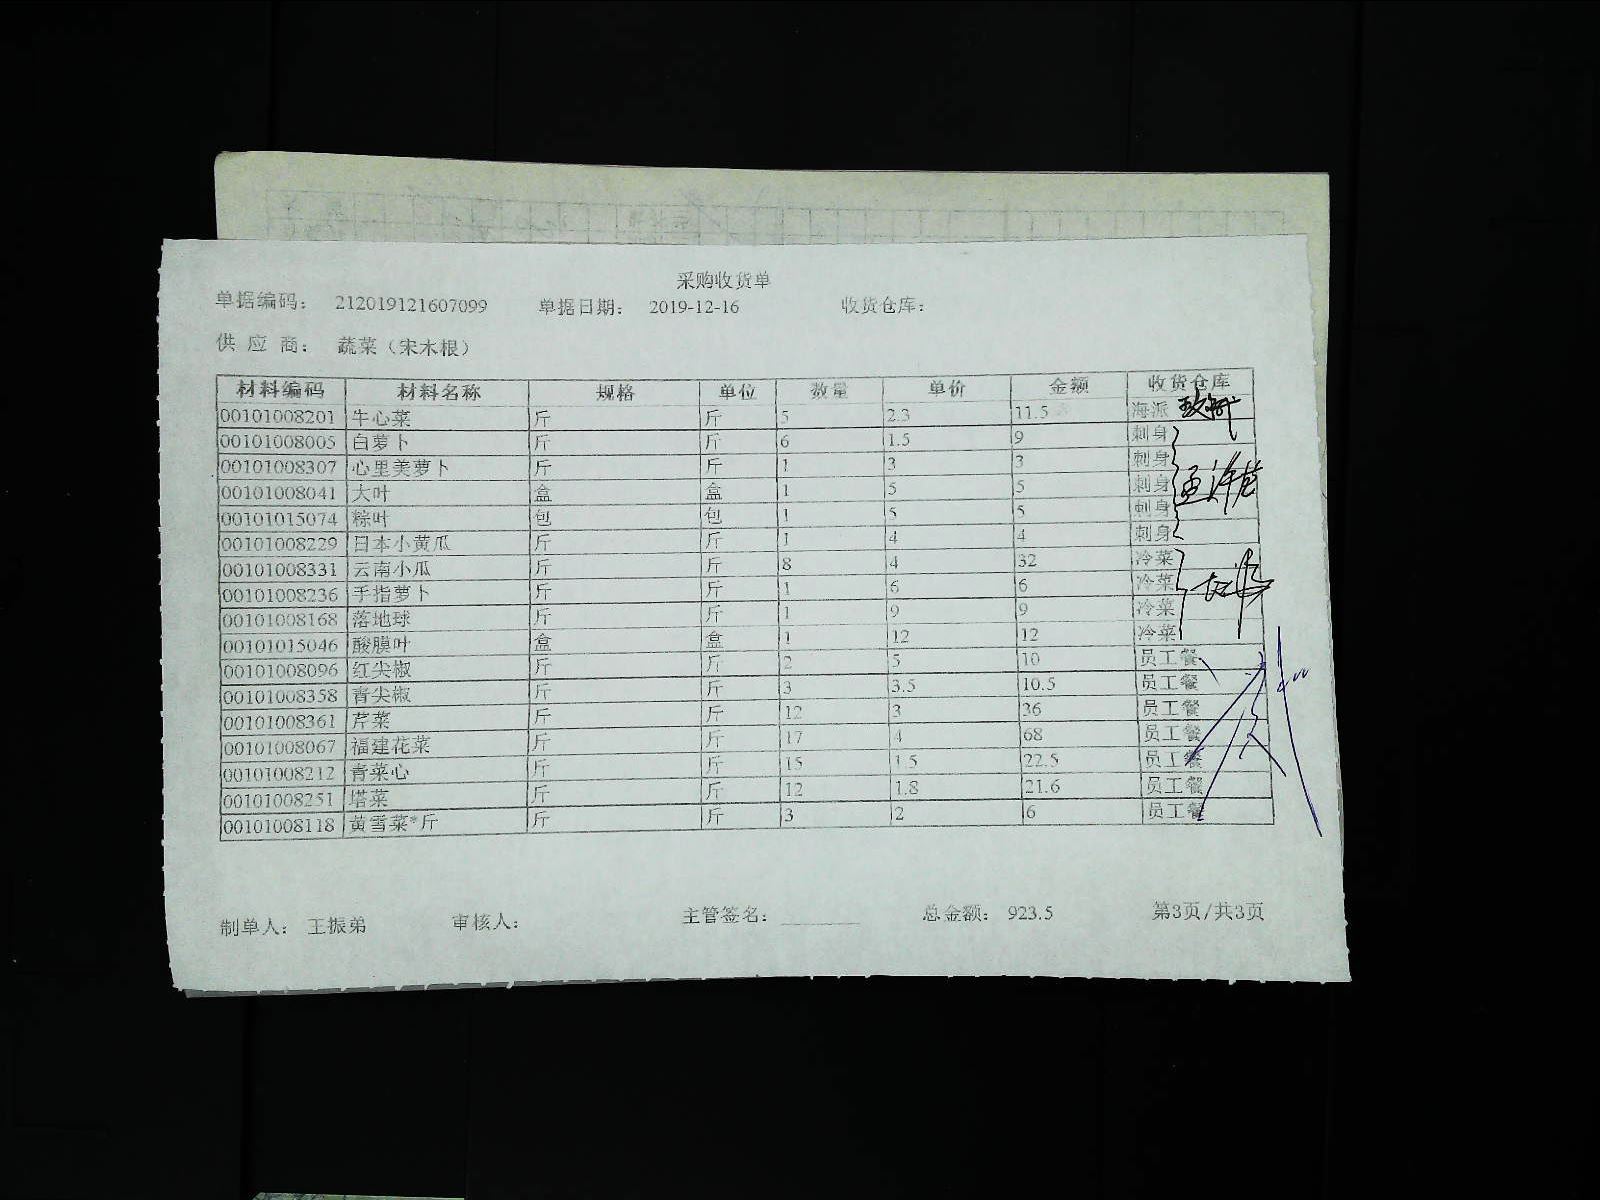 采购收货单
单据编码： 212019121607099 单据日期： 2019-12-16 收货仓库：
供 应 商： 蔬菜（宋木根）
材料编码 材料名称 规格 单位 数量 单价 金额 收货仓库
00101008201 牛心菜 斤 斤 5 2.3 11.5 海派
00101008005 白萝卜 斤 斤 6 1.5 9 刺身
00101008307 心里美萝卜 斤 斤 1 3 3 刺身
00101008041 大叶 盒 盒 1 5 5 刺身
00101015074 粽叶 包 包 1 5 5 刺身
00101008229 日本小黄瓜 斤 斤 1 4 4 刺身
00101008331 云南小瓜 斤 斤 8 4 32 冷菜
00101008236 手指萝卜 斤 斤 1 6 6 冷菜
00101008168 落地球 斤 斤 1 9 9 冷菜
00101015046 酸膜叶 盒 盒 1 12 12 冷菜
00101008096 红尖椒 斤 斤 2 5 10 员工餐
00101008358 青尖椒 斤 斤 3 3.5 10.5 员工餐
00101008361 芹菜 斤 斤 12 3 36 员工餐
00101008067 福建花菜 斤 斤 17 4 68 员工餐
00101008212 青菜心 斤 斤 15 1.5 22.5 员工餐
00101008251 塔菜 斤 斤 12 1.8 21.6 员工餐
00101008118 黄雪菜*斤 斤 斤 3 2 6 员工餐
制单人： 王振弟 审核人： 主管签名： 总金额： 923.5 第3页/共3页